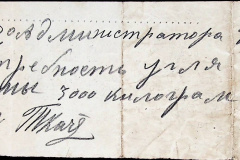 Администратора
требность угля
ны 3000 килограм
Ткач